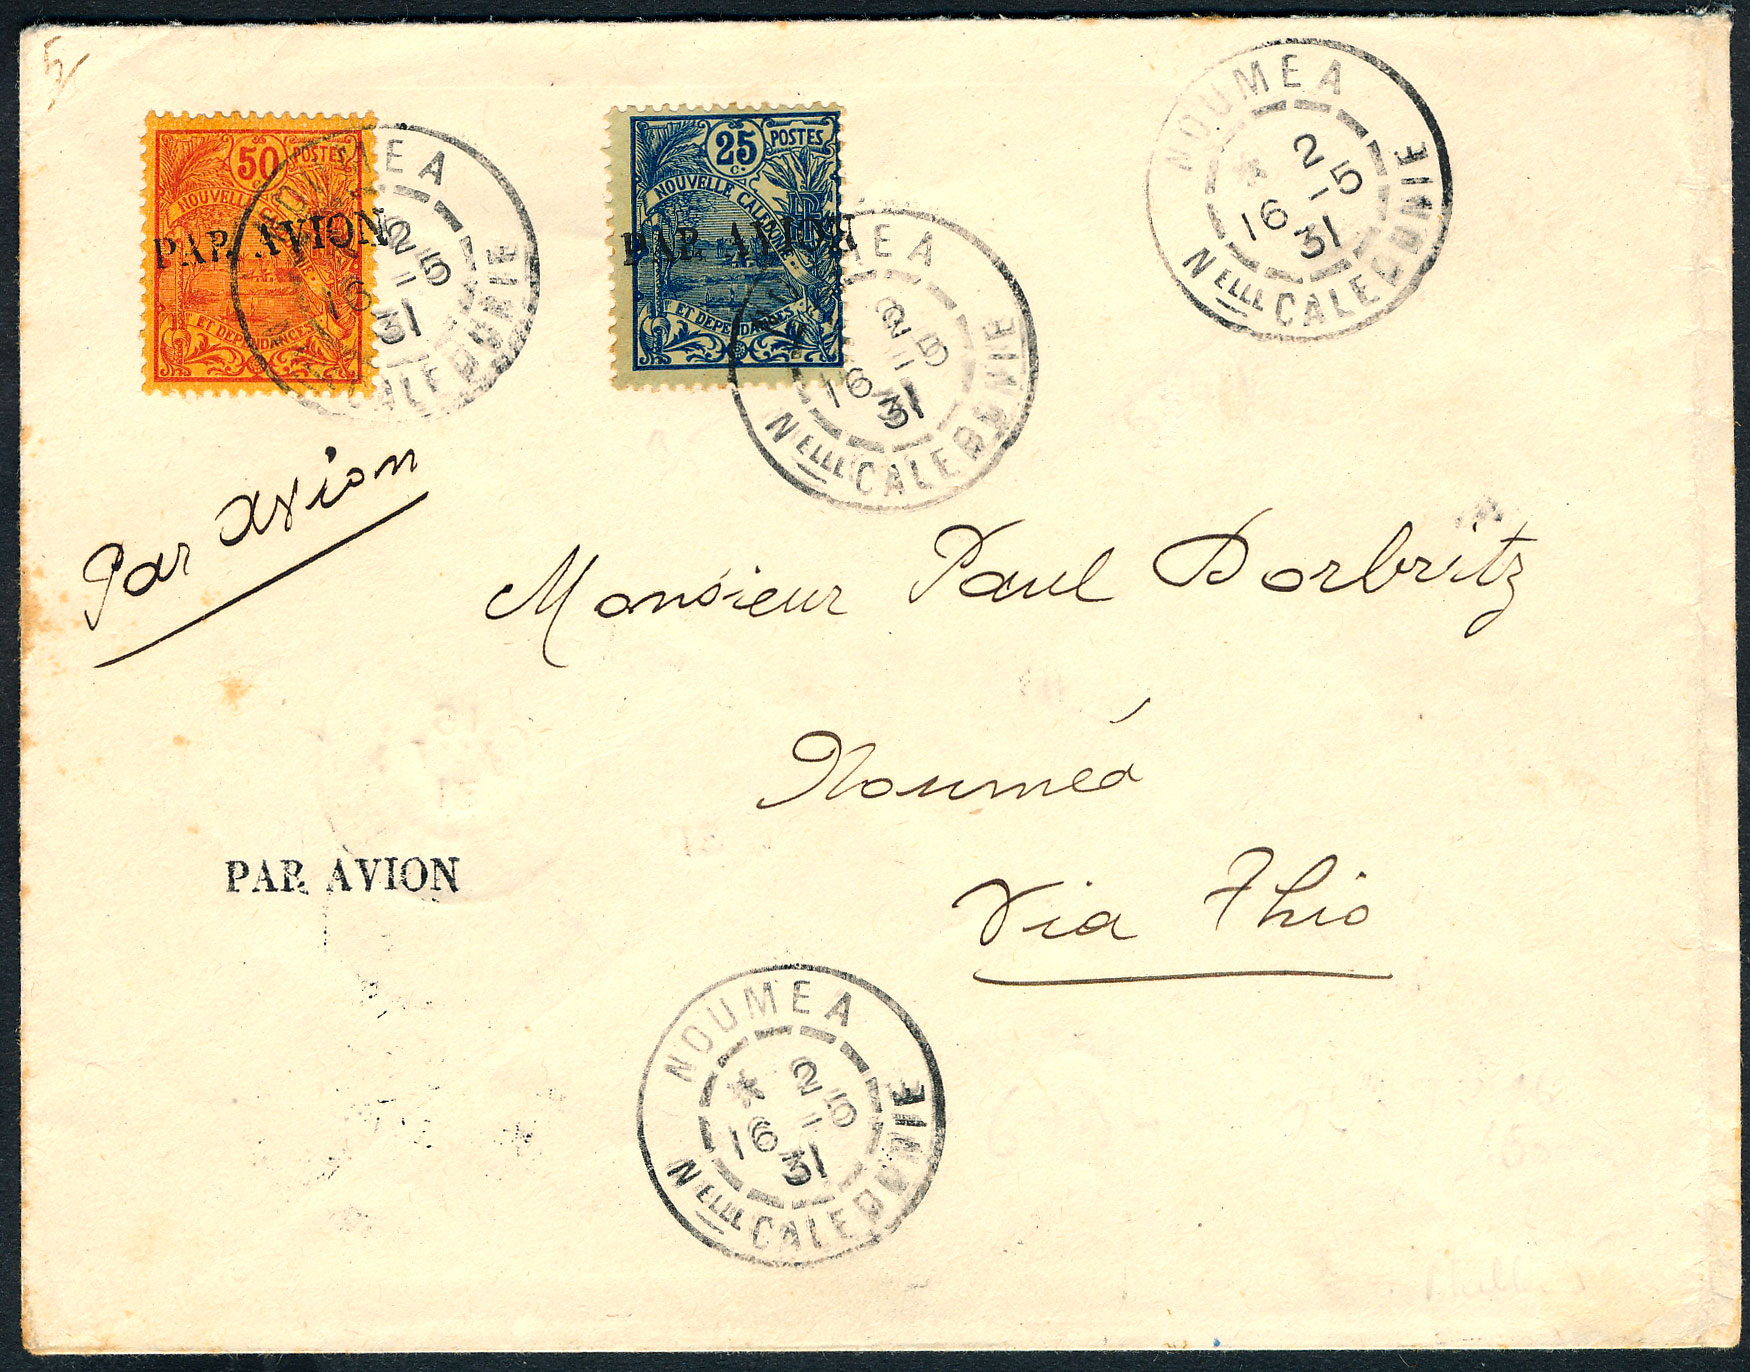 50 c. POSTES
NOUVELLE CALEDONIE
ET DEPENDANCES
PAR AVION
25 c. POSTES
NOUVELLE CALEDONIE
RF
ET DEPENDANCES
PAR AVION
NOUMEA
2 -5
16 31
Nelle CALEDONIE
NOUMEA
2 -5
16 31
Nelle CALEDONIE
NOUMEA
* 2 -5
16 31
Nelle CALEDONIE
Par avion
Monsieur Paul Dorbritz
Nouméa
Via Thio
PAR AVION
NOUMEA
* 2 -5
16 31
Nelle CALEDONIE